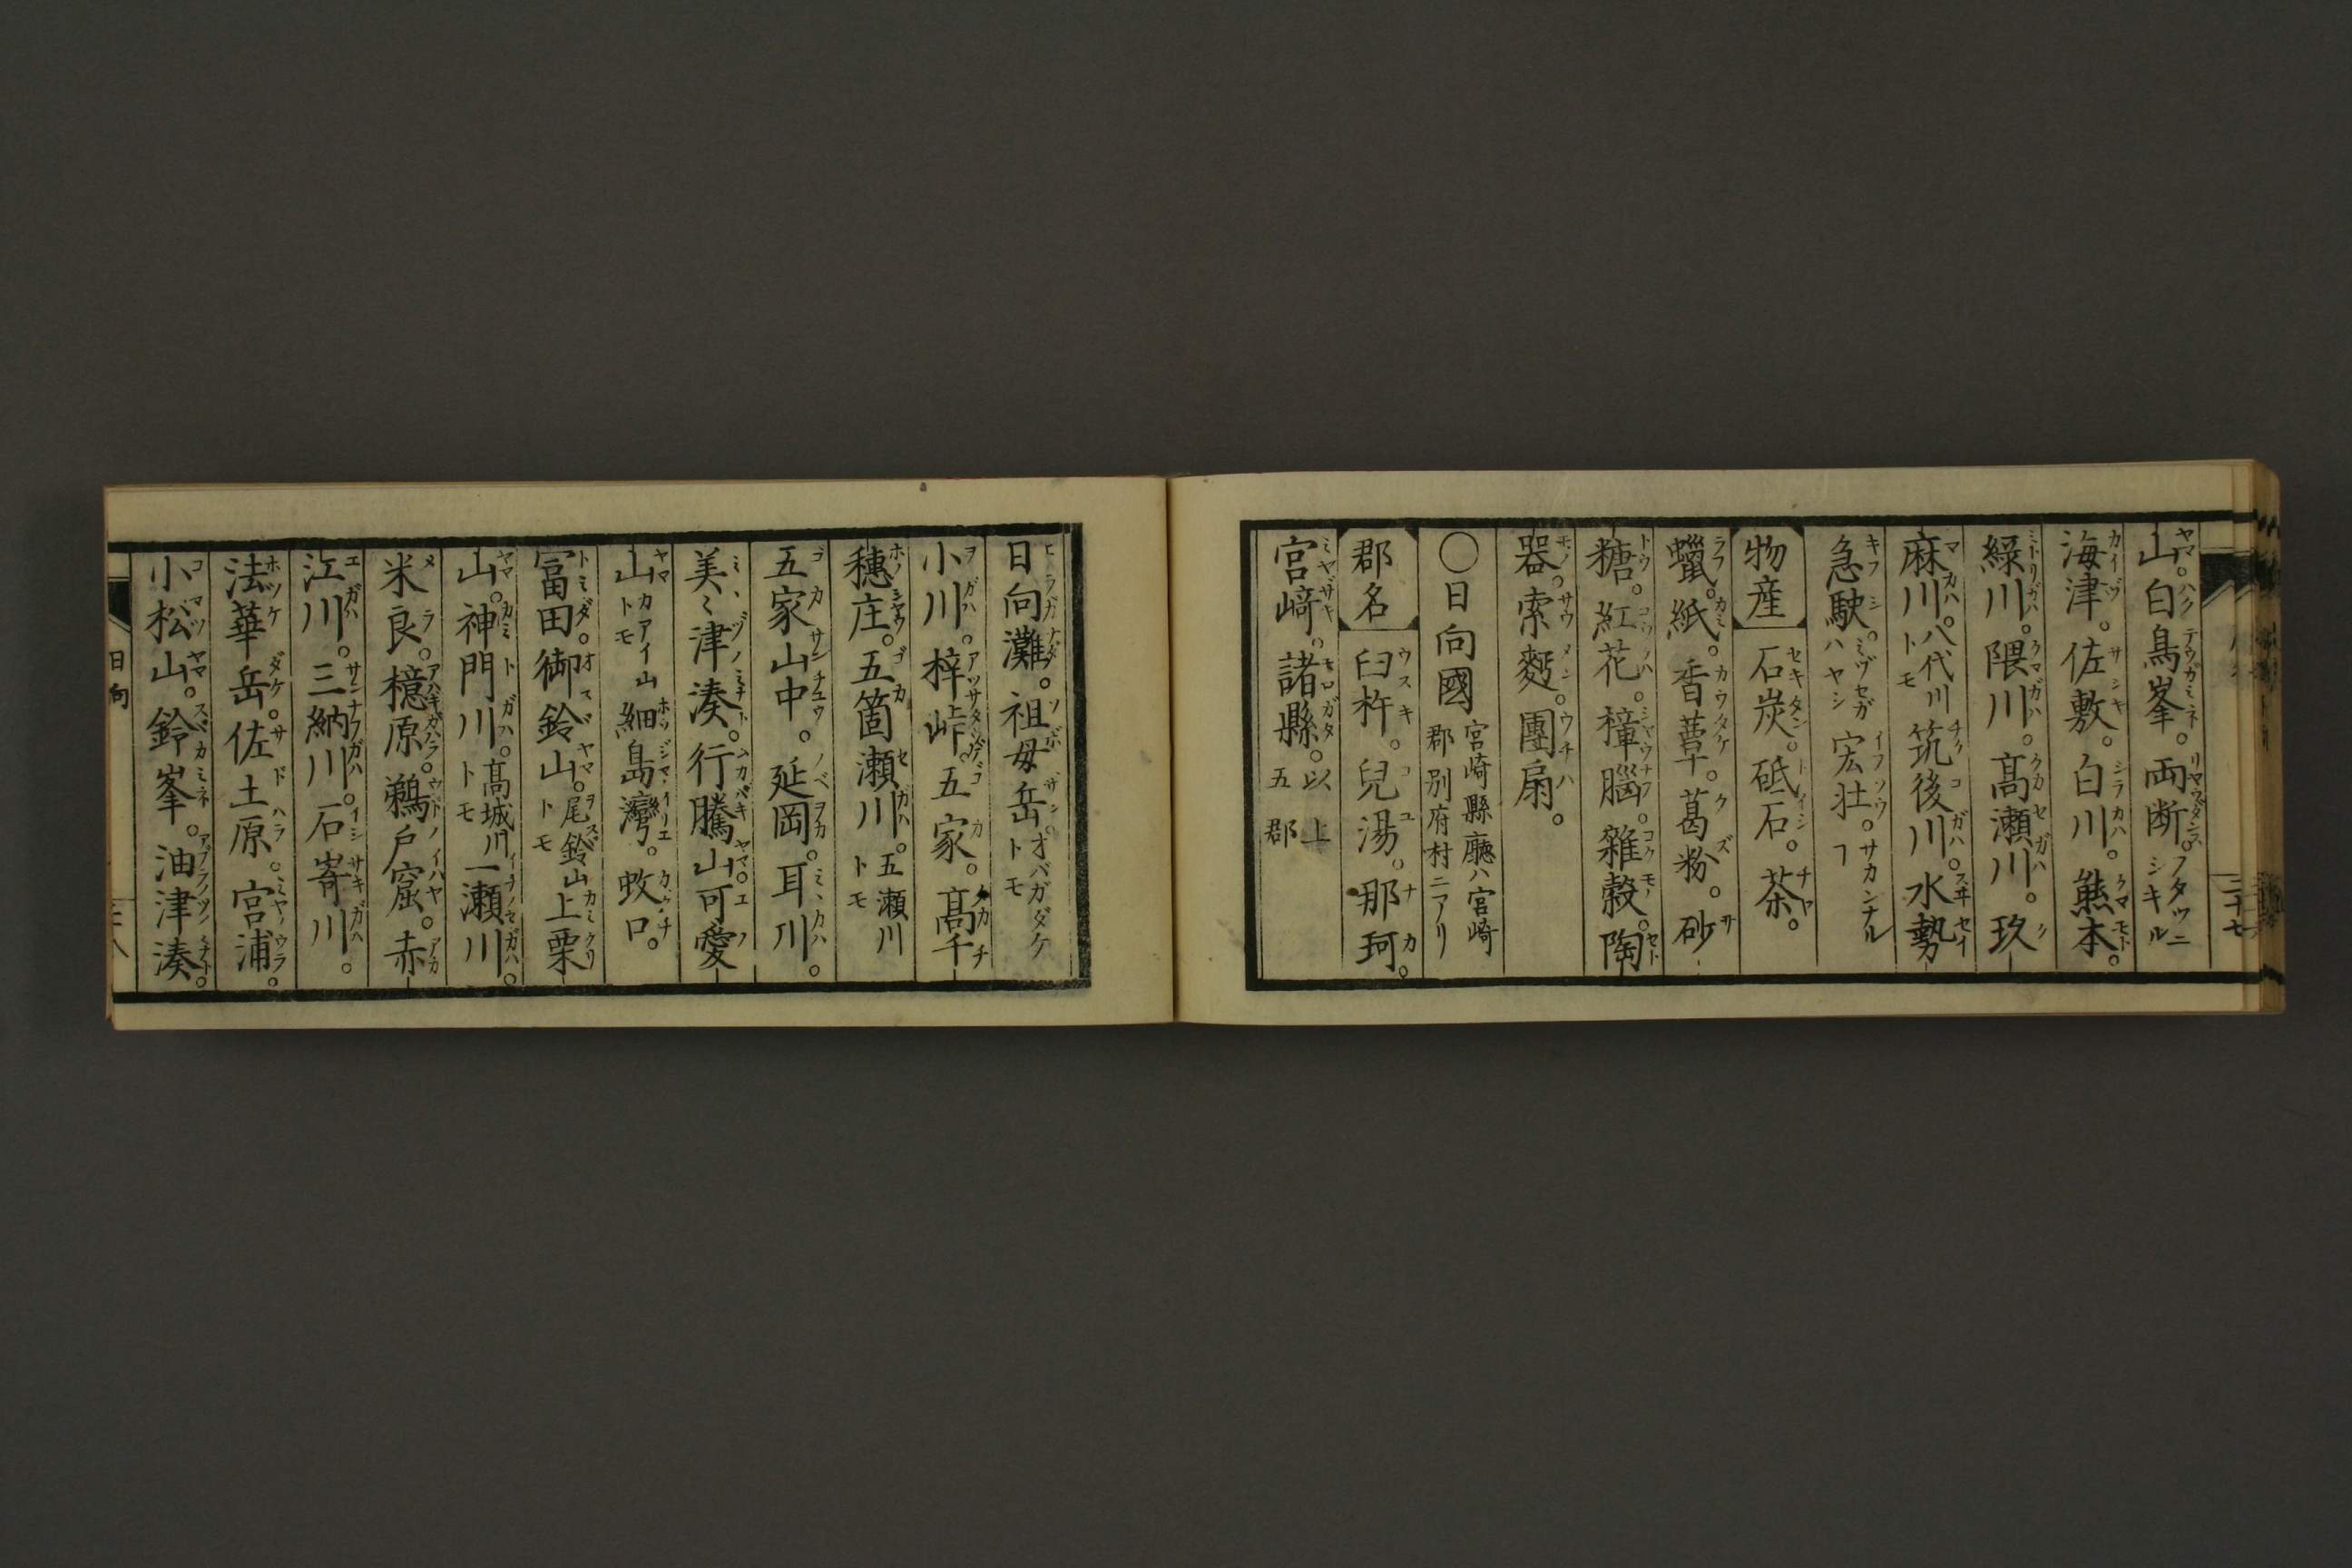 山。白鳥峯。両断。フタツニシキル
海津。佐敷。白川。熊本。
緑川。隈川。髙瀬川。玖
麻川。八代川トモ筑後川。水勢
急駛。ミヅセガハヤシ宏壮。サカンナルヿ
物産 石炭。砥石。茶。
蠟。紙。香蕈。葛粉。砂
糖。紅花。樟腦。雜穀。陶
器。索麪。團扇。
〇日向國 宮崎縣廳ハ宮崎郡別府村ニアリ
郡名 臼杵。兒湯。那珂。
宮﨑。諸縣。以上五郡
日向灘。祖母岳。オバガダケトモ
小川。梓峠。五家。髙千
穗庄。五箇瀬川。五瀬川トモ
五家山中。延岡。耳川。
美〻津湊。行騰山。可愛
山カアイ山トモ細島灣。蚊口。
冨田。御鈴山。尾鈴山トモ上栗
山。神門川。髙城川トモ一瀬川。
米良。檍原。鵜戸窟。赤
江川。三納川。石嵜川。
法華岳。佐土原。宮浦。
小松山。鈴峯。油津湊。
日向